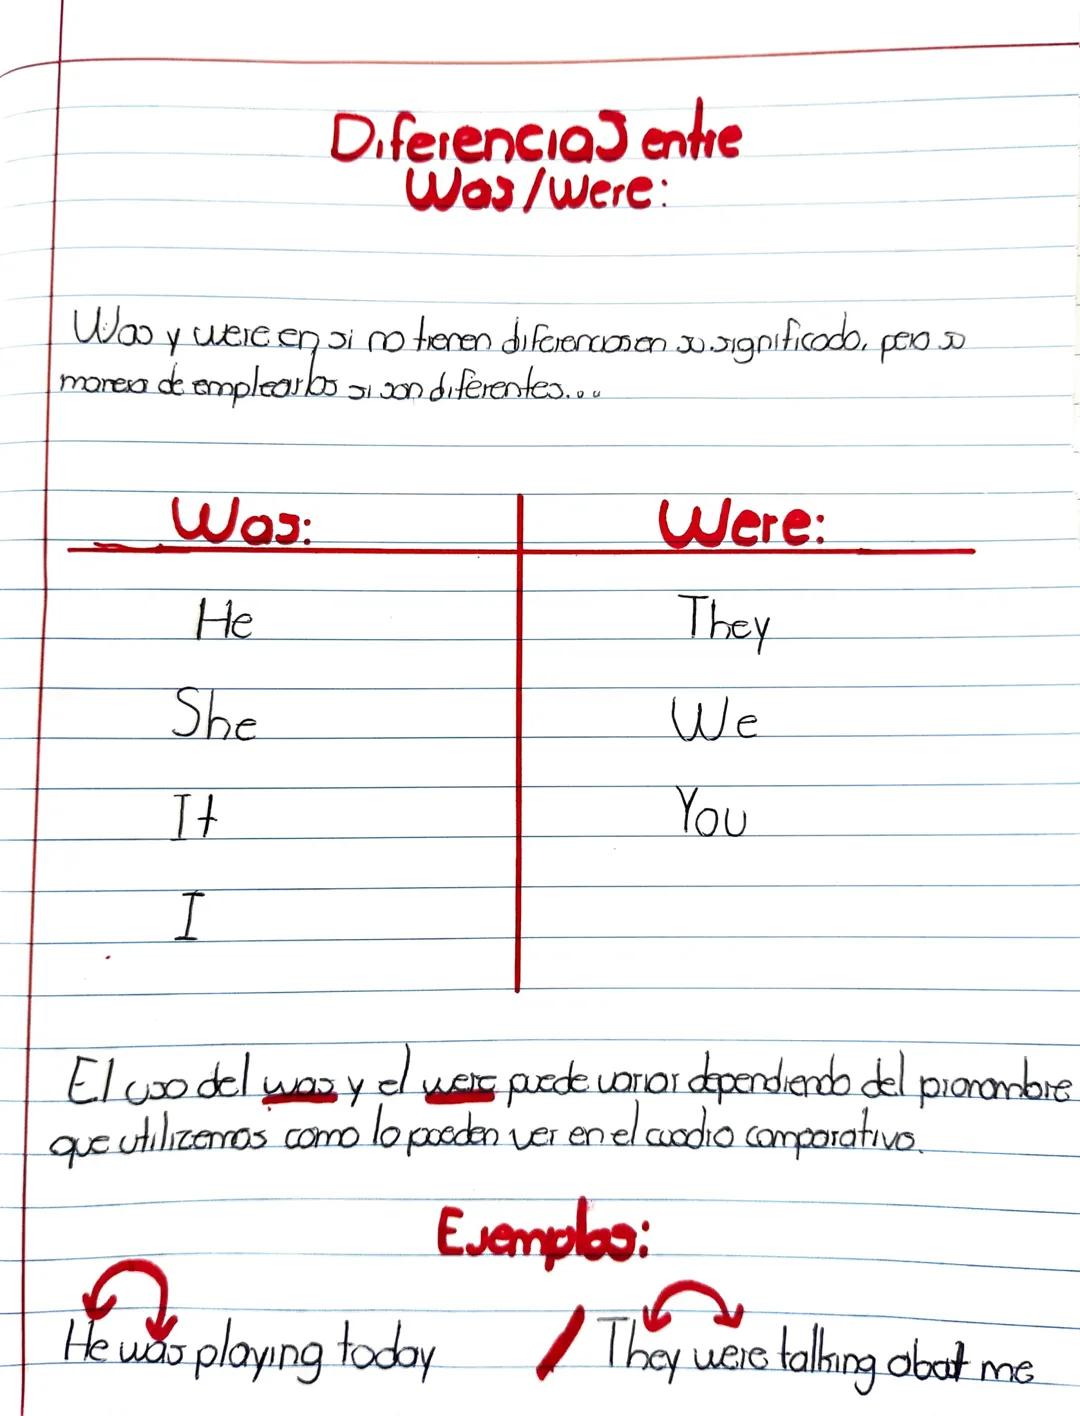 Diferencias entre
Was/Were:
Was y were en si no tienen diferencias en su significado, pero su
manera de emplearlos si son diferentes...
Was: Were:
He They
She We
It You
I
El uso del was y el were puede variar dependiendo del pronombre
que utilizemos como lo pueden ver en el cuadro comparativo.
Ejemplos:
He was playing today / They were talking about me